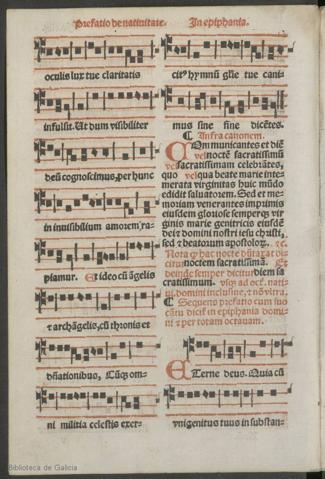 Prefatio de natiuitate. In epiphania.
oculis lux tue claritatis
infulsit. Ut dum visibiliter
deū cognoscimus, per hunc
in inuisibilium amorem ra-
piamur. Et ideo cū āgelis
& archāgelis, cū thronis et
dn̄ationibus, Cūq; om-
ni militia celestis exer-
citꝰ hymnū gl̄ie tue cani-
mus sine fine dicētes.
¶ Infra canonem.
COmmunicantes et diē
vel noctē sacratissimū
vel sacratissimam celebrātes,
quo vel qua beate marie inte-
merata virginitas huic mūdo
edidit saluatorem. Sed et me-
moriam venerantes imprimis
eiusdem gloriose semperq; vir
ginis marie genitricis eiusdē
dei et domini nostri iesu christi,
sed & beatorum apostoloꝝ. &c.
Nota ꝙ hac nocte dūtaxat di-
citur noctem sacratissimā. Et
deinde semper dicitur diem sa
cratissimum. vsq; ad oct. nati-
ui. domini inclusiue, & nō vltra.
¶ Sequens prefatio cum suo
cātu dicit̄ in epiphania domi-
ni & per totam octauam.
ETerne deus. Quia cū
vnigenitus tuus in substan-
Biblioteca de Galicia